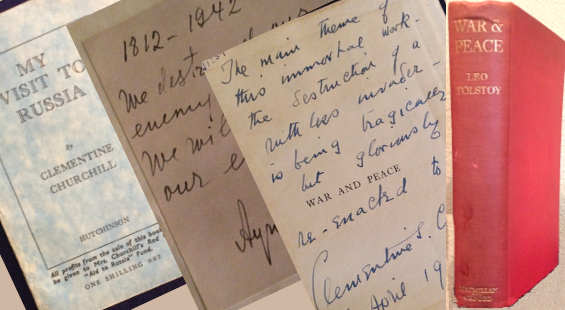 MY
VISIT TO
RUSSIA
By
CLEMENTINE
CHURCHILL
HUTCHINSON
All profits from the sale of this book
be given to Mrs. Churchill's Red
"Aid to Russia" Fund.
ONE SHILLING NET
1812-1942
We
enemy
We
our
The main theme of
this immortal work -
the destruction of a
ruthless invader -
is being tragically
but gloriously
WAR AND PEACE
re-enacted to
Clementine S. C
April 19
WAR &
PEACE
LEO
TOLSTOY
MACMILLAN